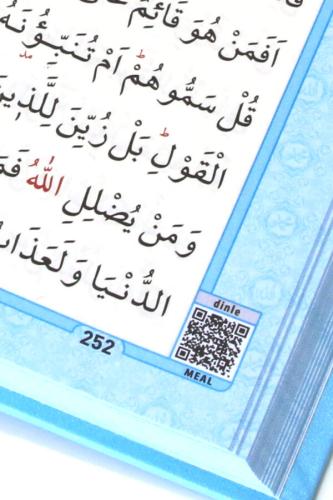 اَفَمَنْ هُوَ قَٓائِمٌ
قُلْ سَمُّوهُمْؕ اَمْ تُنَبِّؤُ۫نَهُ
الْقَوْلِؕ بَلْ زُيِّنَ لِلَّذ۪ينَ
وَمَنْ يُضْلِلِ اللّٰهُ
الدُّنْيَا وَلَعَذَابُ
dinle
252
MEAL